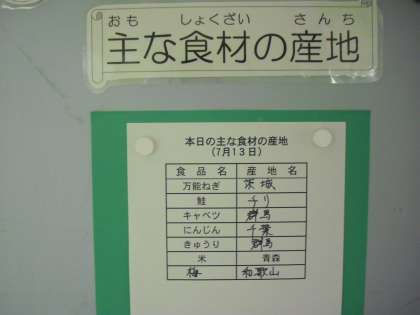 おも しょくざい さんち
主な食材の産地
本日の主な食材の産地
(7月13日)
食品名 産地名
万能ねぎ 茨城
鮭 チリ
キャベツ 群馬
にんじん 千葉
きゅうり 群馬
米 青森
梅 和歌山